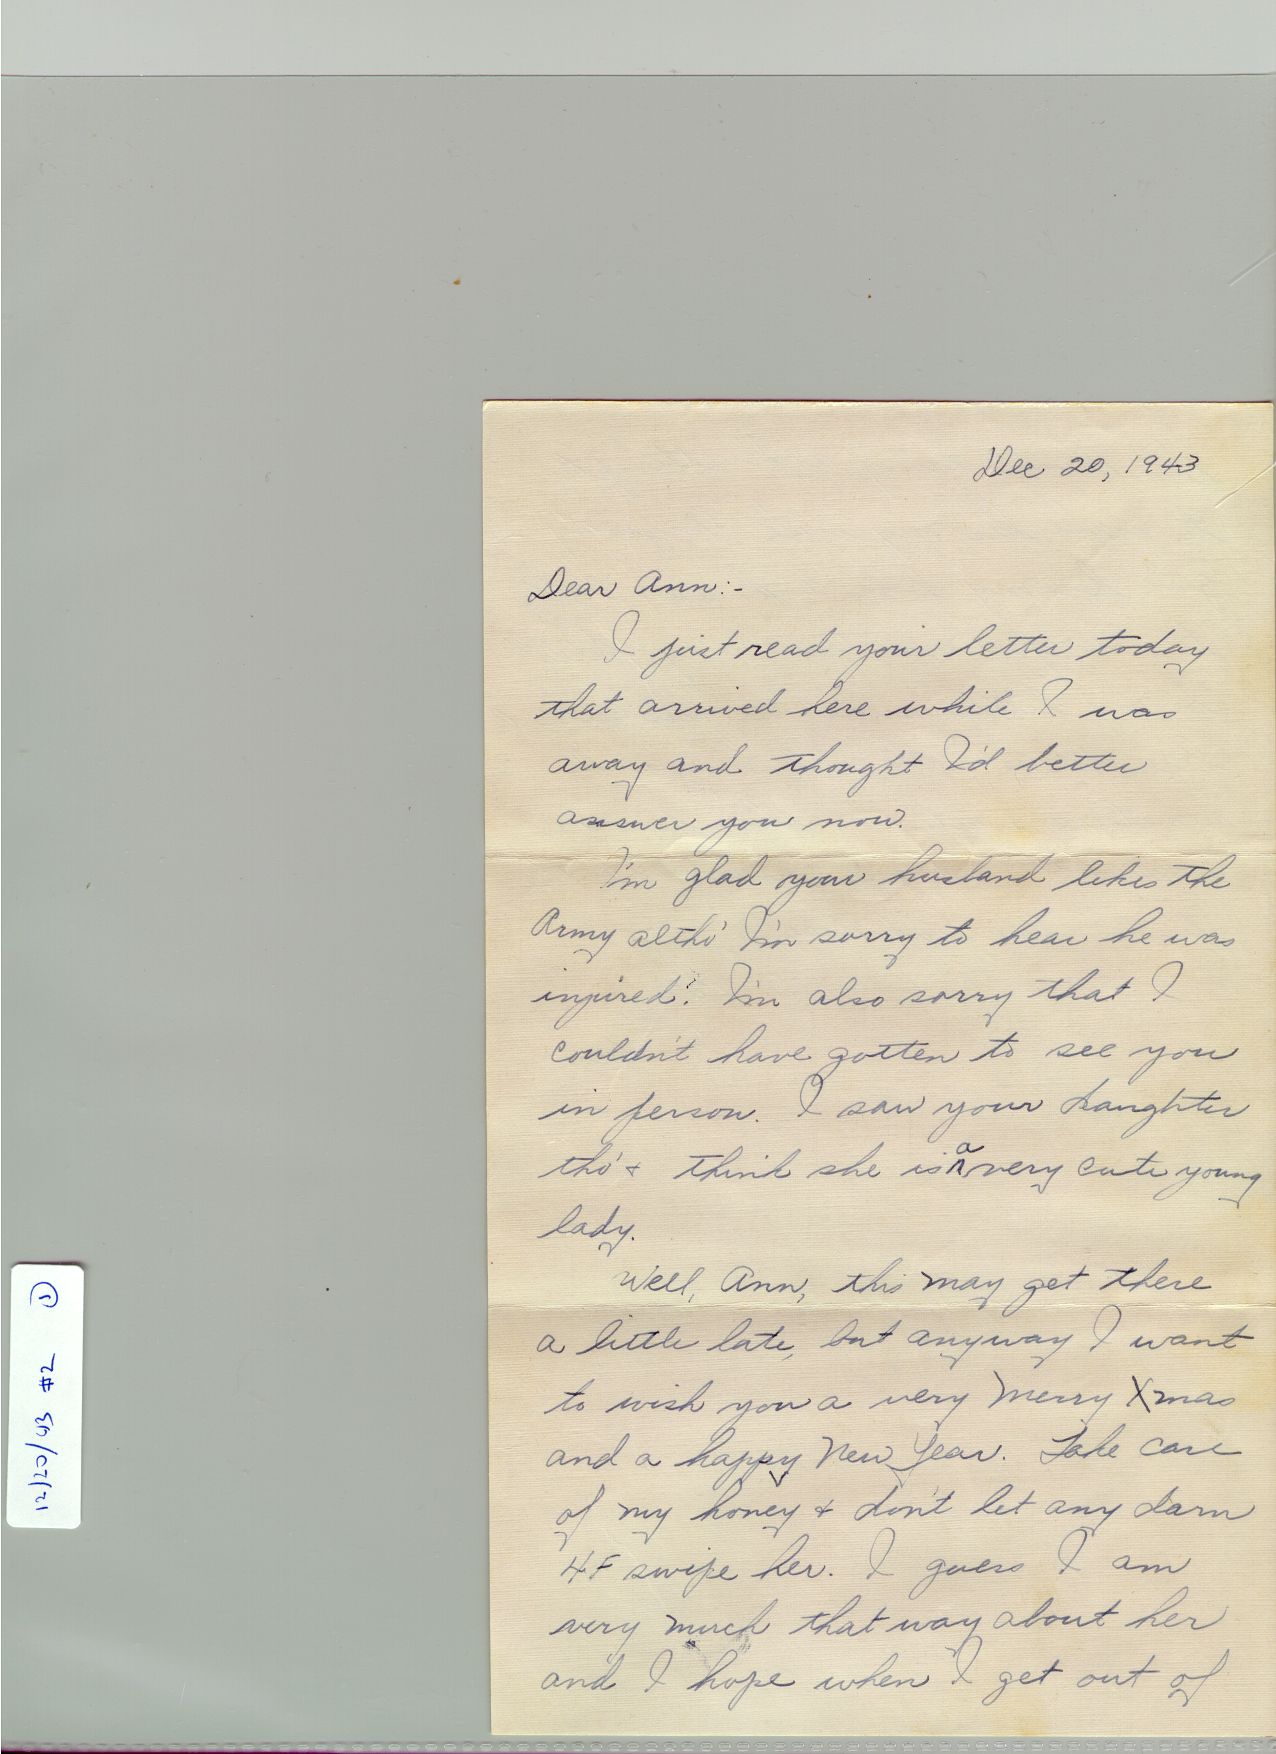 Dec 20, 1943
Dear Ann:-
I just read your letter today
that arrived here while I was
away and thought I'd better
answer you now.
I'm glad your husband likes the
Army altho' I'm sorry to hear he was
injured. I'm also sorry that I
couldn't have gotten to see you
in person. I saw your daughter
tho' + think she is a very cute young
lady.
Well, Ann, this may get there
a little late, but anyway I want
to wish you a very Merry Xmas
and a happy New Year. Take care
of my honey + don't let any darn
4F swipe her. I guess I am
very much that way about her
and I hope when I get out of
12/20/43 #2 1